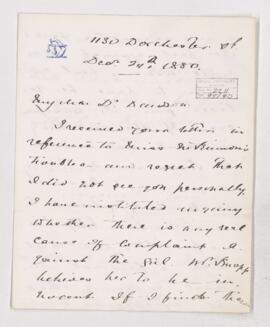 1130 Dorchester St
Dec 24th 1880.
My dear Dr Dawson
I received your letter in
reference to Miss
troubles and regret that
I did not see you personally.
I have instituted inquiry
whether there is any real
cause of complaint a-
gainst the girl. Mr
believes her to be in-
nocent If I find the